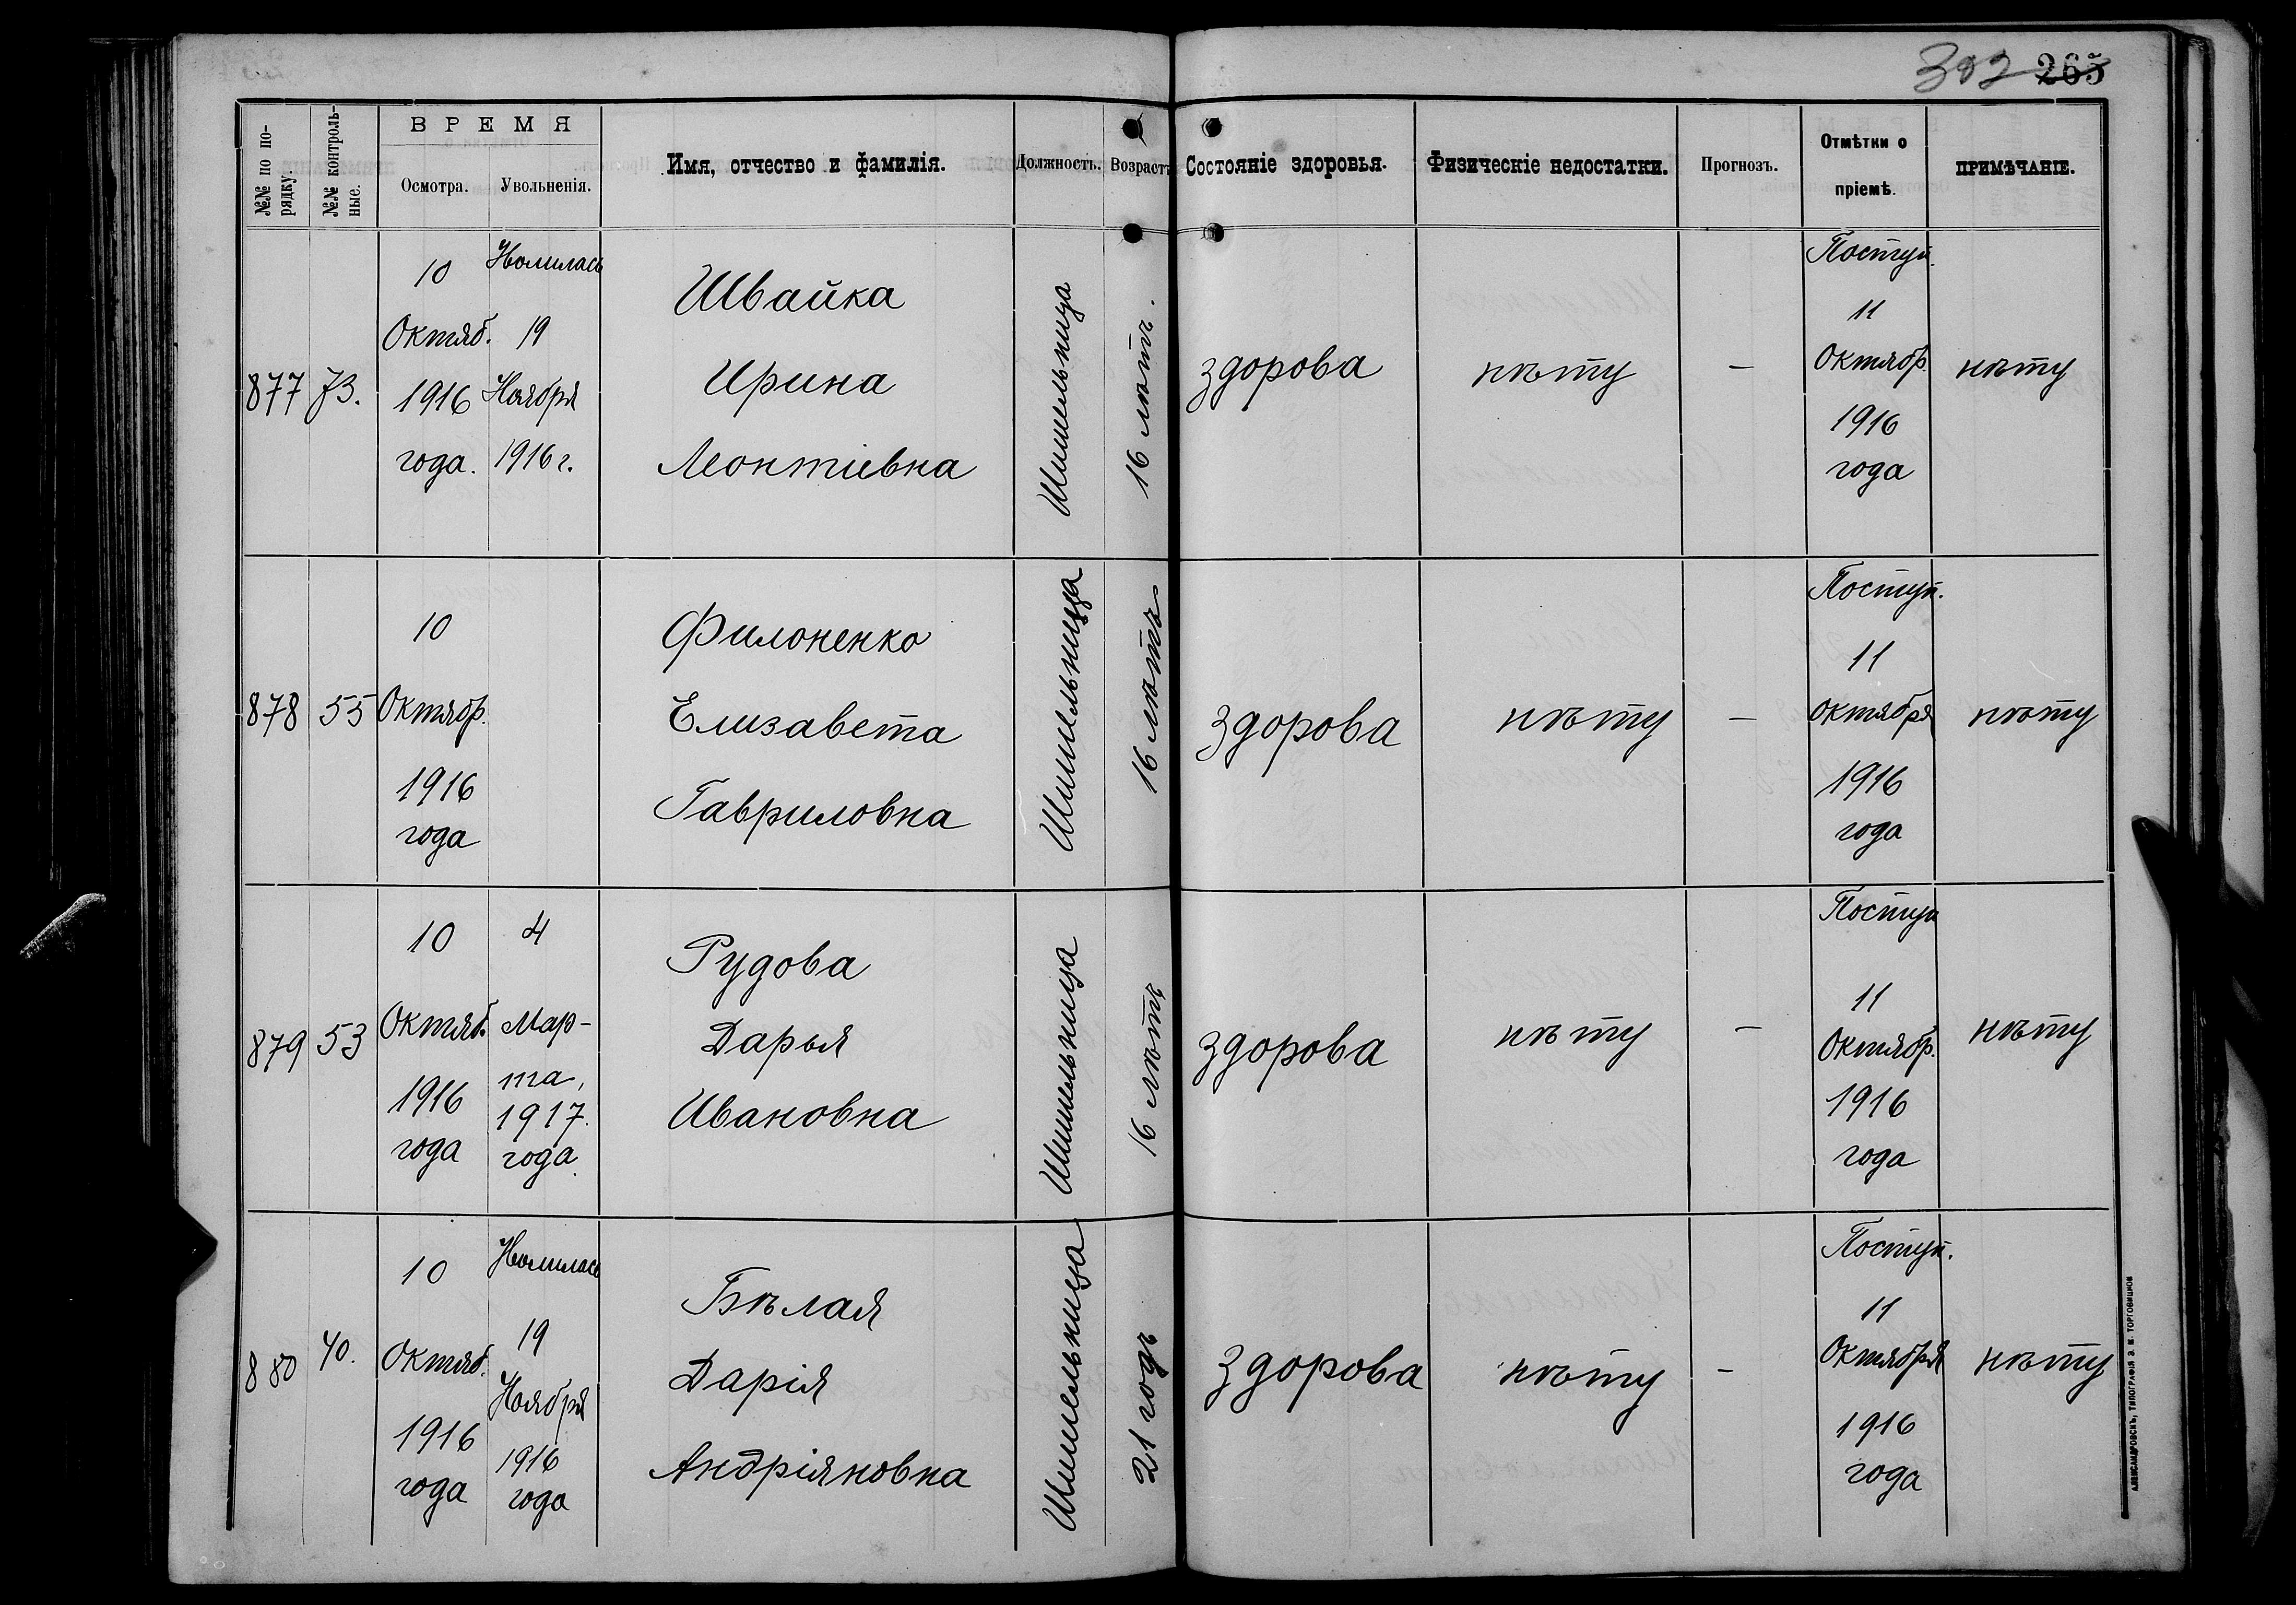 302 265
№№ по по-
рядку.
№№ контроль-
ные.
ВРЕМЯ
Осмотра.
Увольненія.
Имя, отчество и фамилія.
Должность.
Возрастъ
Состояніе здоровья.
Физическіе недостатки.
Прогнозъ.
Отмѣтки о
пріемѣ.
ПРИМѢЧАНІЕ.
877
73.
10
Октяб.
1916
года.
19
Ноября
1916 г.
Швайка
Ирина
Леонтіевна
Шишельница
16 лѣтъ.
здорова
нѣту
—
Поступ.
11
Октябр.
1916
года
нѣту
878
55
10
Октябр.
1916
года
Филоненко
Елизавета
Гавриловна
Шишельница
16 лѣтъ
здорова
нѣту
—
Поступ.
11
Октября
1916
года
нѣту
879
53
10
Октяб.
1916
года
4
Мар-
та,
1917.
года.
Рудова
Дарья
Ивановна
Шишельница
16 лѣтъ
здорова
нѣту
—
Поступ
11
Октябр.
1916
года
нѣту
880
40.
10
Октяб.
1916
года
19
Ноября
1916
года
Бѣлая
Дарія
Андріяновна
Шишельница
21 годъ
здорова
нѣту
—
Поступ.
11
Октября
1916
года
нѣту
АЛЕКСАНДРОВСКЪ, ТИПОГРАФІЯ З. М. ТОРГОВИЦКОВ